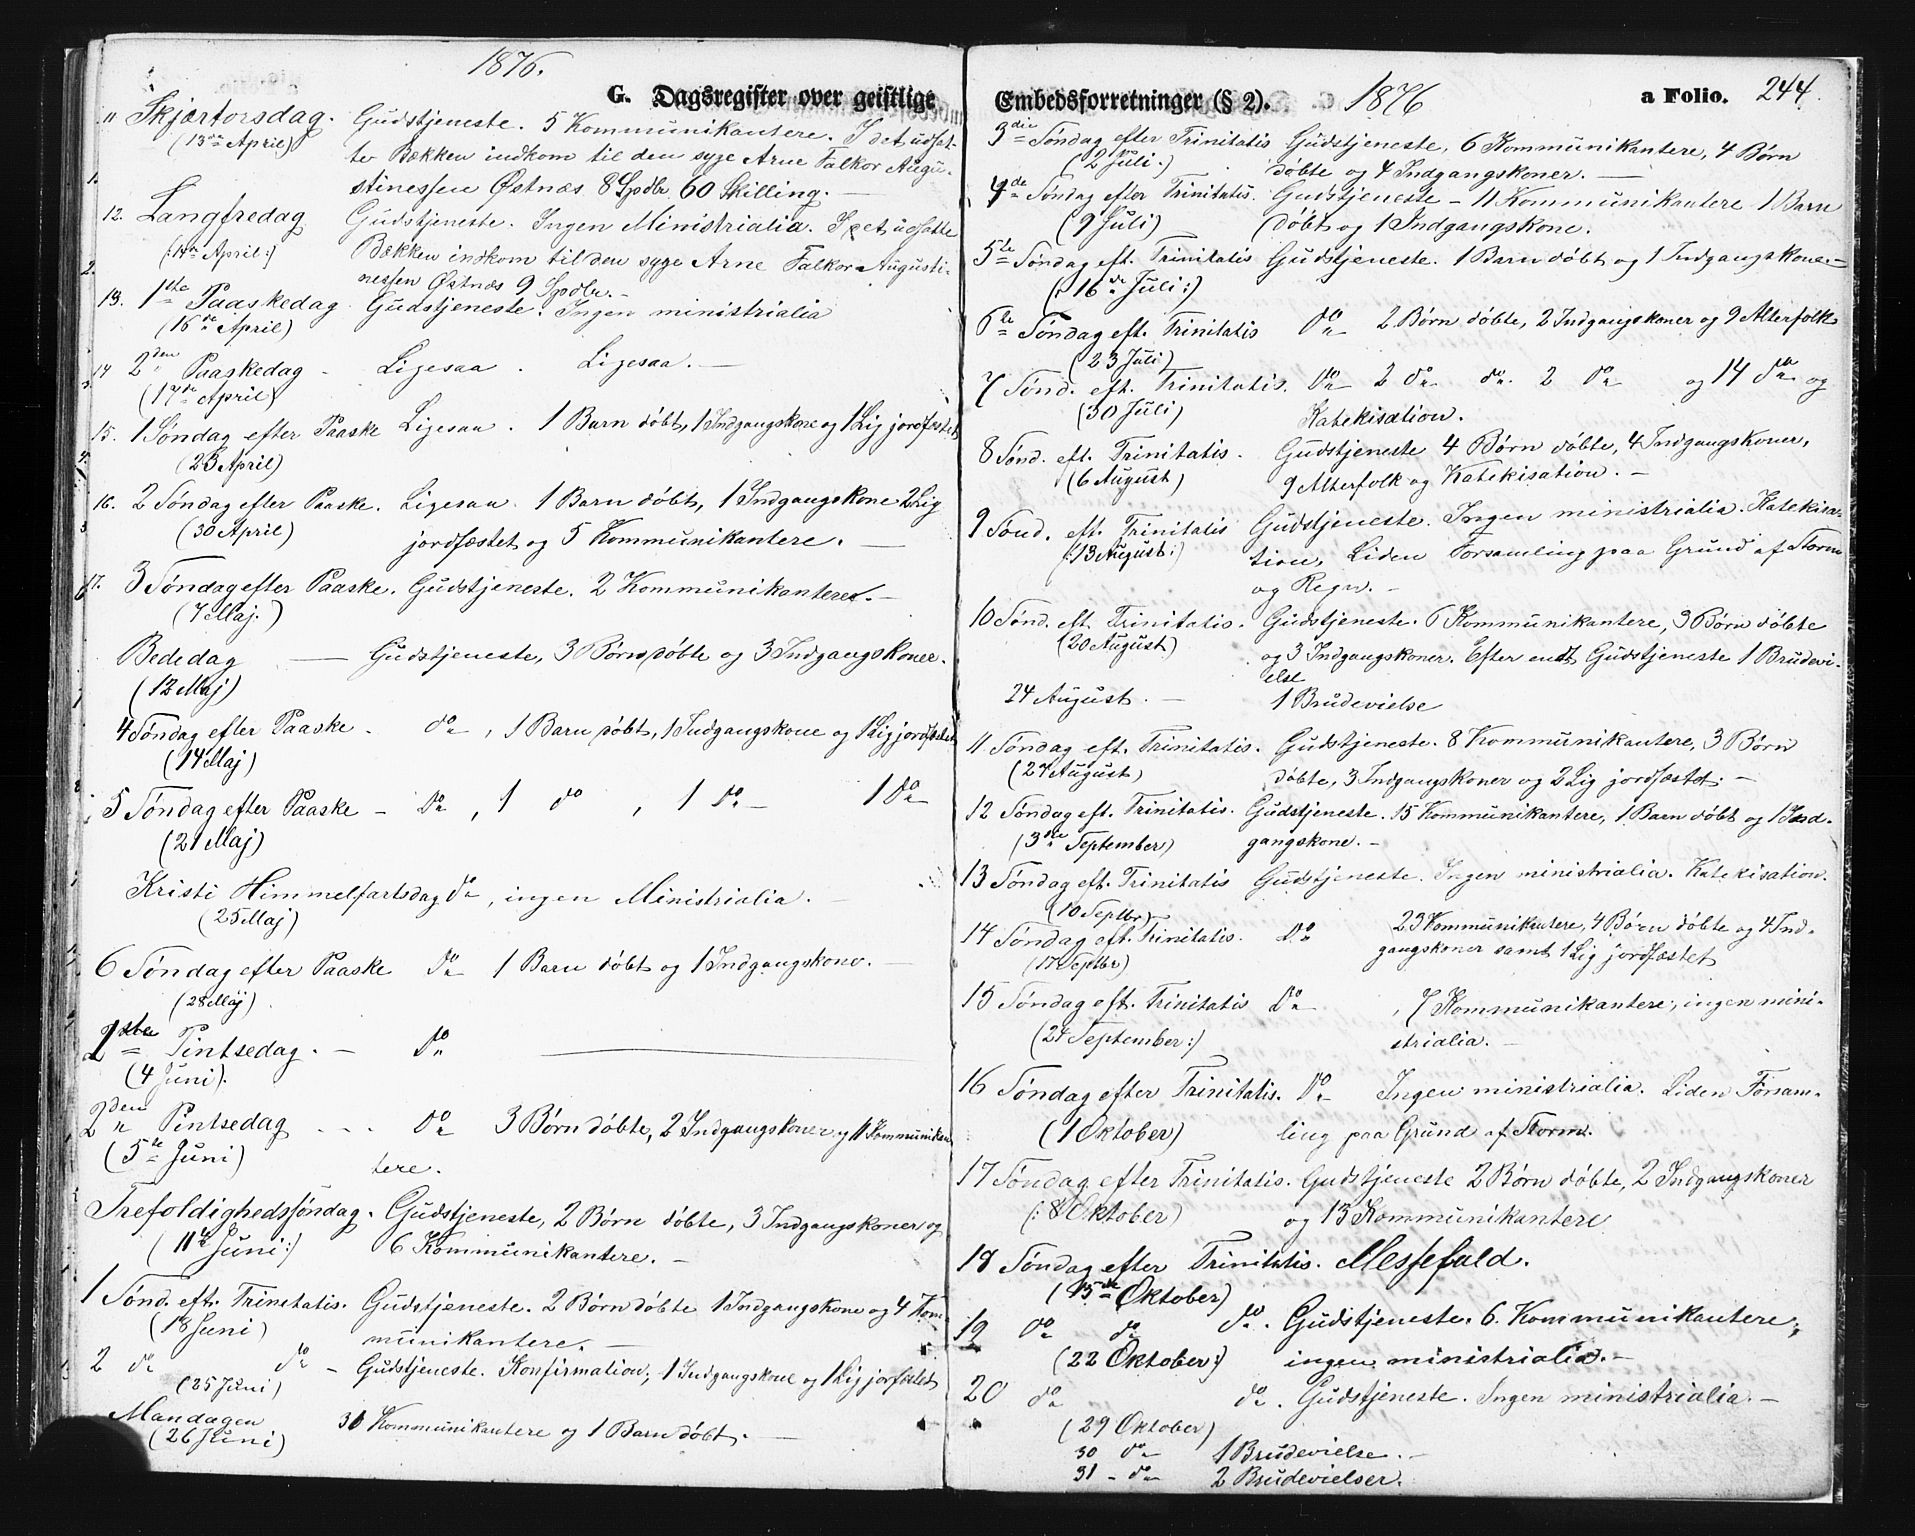 1876.
G. Dagsregister over geistlige
" Skjærtorsdag. Gudstjeneste. 5 Kommunikantere. I det udsat-
(13de April) te Bækken indkom til den syge Arne Falkor Augu-
1. stinessen Østnæs 8 Spdlr 60 Skilling. —
12. Langfredag Gudstjeneste. Ingen Ministrialia. I det udsatte
(14de April:) Bækken indkom til den syge Arne Falkor Augusti-
2. nessen Østnæs 9 Spdlr. -
13. 1ste Paaskedag Gudstjeneste. Ingen ministrialia
(16de April)
14 2den Paaskedag - Ligesaa. Ligesaa. —
(17de April)
15. 1 Søndag efter Paaske Ligesaa. 1 Barn døbt, 1 Indgangskone og 1 Lig jordfæstet
(23 April)
16. 2 Søndag efter Paaske. Ligesaa. 1 Barn døbt, 1 Indgangskone 2 Lig
(30 April) jordfæstet og 5 Kommunikantere. —
17. 3 Søndag efter Paaske. Gudstjeneste. 2 Kommunikantere. -
(7 Maj.)
Bededag — Gudstjeneste, 3 Børn døbte og 3 Indgangskoner.
(12 Maj)
4 Søndag efter Paaske. do, 1 Barn døbt, 1 Indgangskone og 1 Lig jordfæstet
(14 Maj)
5 Søndag efter Paaske - do, 1 do, 1 do - 1 do
(21 Maj)
Kristi Himmelfartsdag do, ingen Ministrialia. —
(25 Maj)
6 Søndag efter Paaske do 1 Barn døbt og 1 Indgangskone. —
(28 Maj)
1ste Pintsedag. - do —
(4 Juni).
2den Pintsedag - - - do 3 Børn døbte, 2 Indgangskoner og 11 Kommunikan
(5te Juni) tere.
Trefoldighedssøndag. Gudstjeneste, 2 Børn døbte, 3 Indgangskoner og
(11te Juni:) 6 Kommunikantere. -
1 Sønd. eft. Trinitatis. Gudstjeneste. 2 Børn døbte 1 Indgangskone og 4 Kom-
(18 Juni) munikantere. -
2 do do - Gudstjeneste. Konfirmation, 1 Indgangskone og 1 Lig jorfæstet
(25 Juni)
Mandagen 31 Kommunikantere og 1 Barn døbt. —
(26 Juni)
Embedsforretninger (§ 2). 1876 a Folio. 244.
3die Søndag efter Trinitatis Gudstjeneste, 6 Kommunikantere, 4 Børn
(2 Juli.) døbte og 4 Indgangskoner. —
4de Søndag efter Trinitatis. Gudstjeneste - 11 Kommunikantere 1 Barn
(9 Juli) døbt og 1 Indgangskone.
5te Søndag eft. Trinitatis Gudstjeneste. 1 Barn døbt og 1 Indgangskone. -
(: 16de Juli:)
6te Søndag eft. Trinitatis do 2 Børn døbte, 2 Indgangskoner og 9 Alterfolk
(23 Juli)
7 Sønd. eft. Trinitatis. do 2 do do. 2 do og 14 do og
(30 Juli) Katekisation.
8 Sønd. eft. Trinitatis. Gudstjeneste 4 Børn døbte, 4 Indgangskoner,
(6 August) 9 Alterfolk og Katekisation. -
9 Sønd. eft. Trinitatis Gudstjeneste. Ingen ministrialia. Katekisa-
(:13 August:) tion, Liden Forsamling paa Grund af Storm
og Regn. -
10 Sønd. eft. Trinitatis. Gudstjeneste. 6 Kommunikantere, 3 Børn døbte
(20 August) og 3 Indgangskoner. Efter endt Gudstjeneste 1 Brudevi-
else
24 August. - 1 Brudevielse
11 Søndag eft. Trinitatis. Gudstjeneste. 8 Kommunikantere, 3 Børn
(27 August) døbte, 3 Indgangskoner og 2 Lig jordfæstet. -
12 Søndag eft. Trinitatis. Gudstjeneste. 15 Kommunikantere, 1 Barn døbt og 1 Ind-
(3die September) gangskone. -
13 Søndag eft. Trinitatis Gudstjeneste. Ingen ministrialia. Katekisation.
(10 Septbr)
14 Søndag eft. Trinitatis. do 23 Kommunikantere, 4 Børn døbte og 4 Ind-
(17 Septbr) gangskoner samt 1 Lig jordfæstet
15 Søndag eft. Trinitatis do , 7 Kommunikantere, ingen mini-
(24 September:) strialia. -
16 Søndag efter Trinitatis. do Ingen ministrialia. Liden Forsam-
(1 Oktober) ling paa Grund af Storm.
17 Søndag efter Trinitatis. Gudstjeneste 2 Børn døbte, 2 Indgangskoner
(: 8 Oktober) og 13 Kommunikantere
18 Søndag efter Trinitatis. Messefald.
(15de Oktober)
19 do do do. Gudstjeneste. 6 Kommunikantere,
(22 Oktober:) ingen ministrialia. -
20 do do. Gudstjeneste. Ingen ministrialia. -
(29 Oktober)
30 do 1 Brudevielse. -
31 - do 2 Brudevielser.